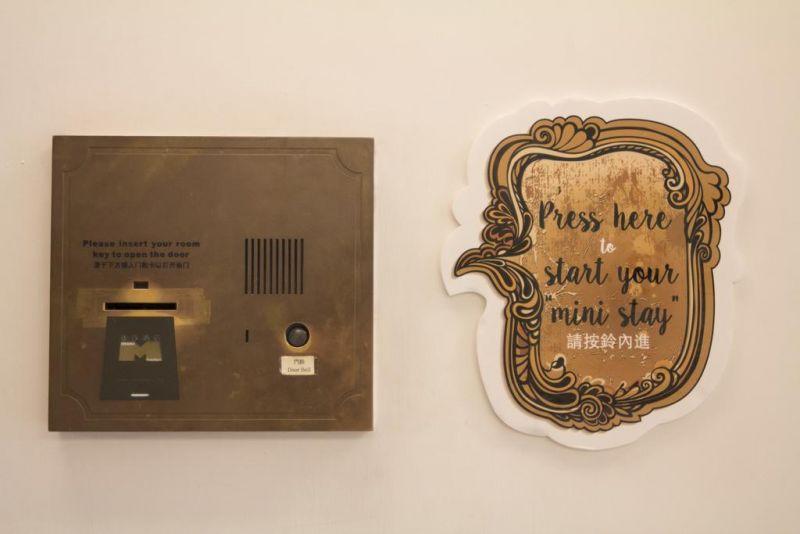 Please insert your room
key to open the door
M
門鈴
Door Bell
Press here
to
start your
"mini stay"
請按鈴內進